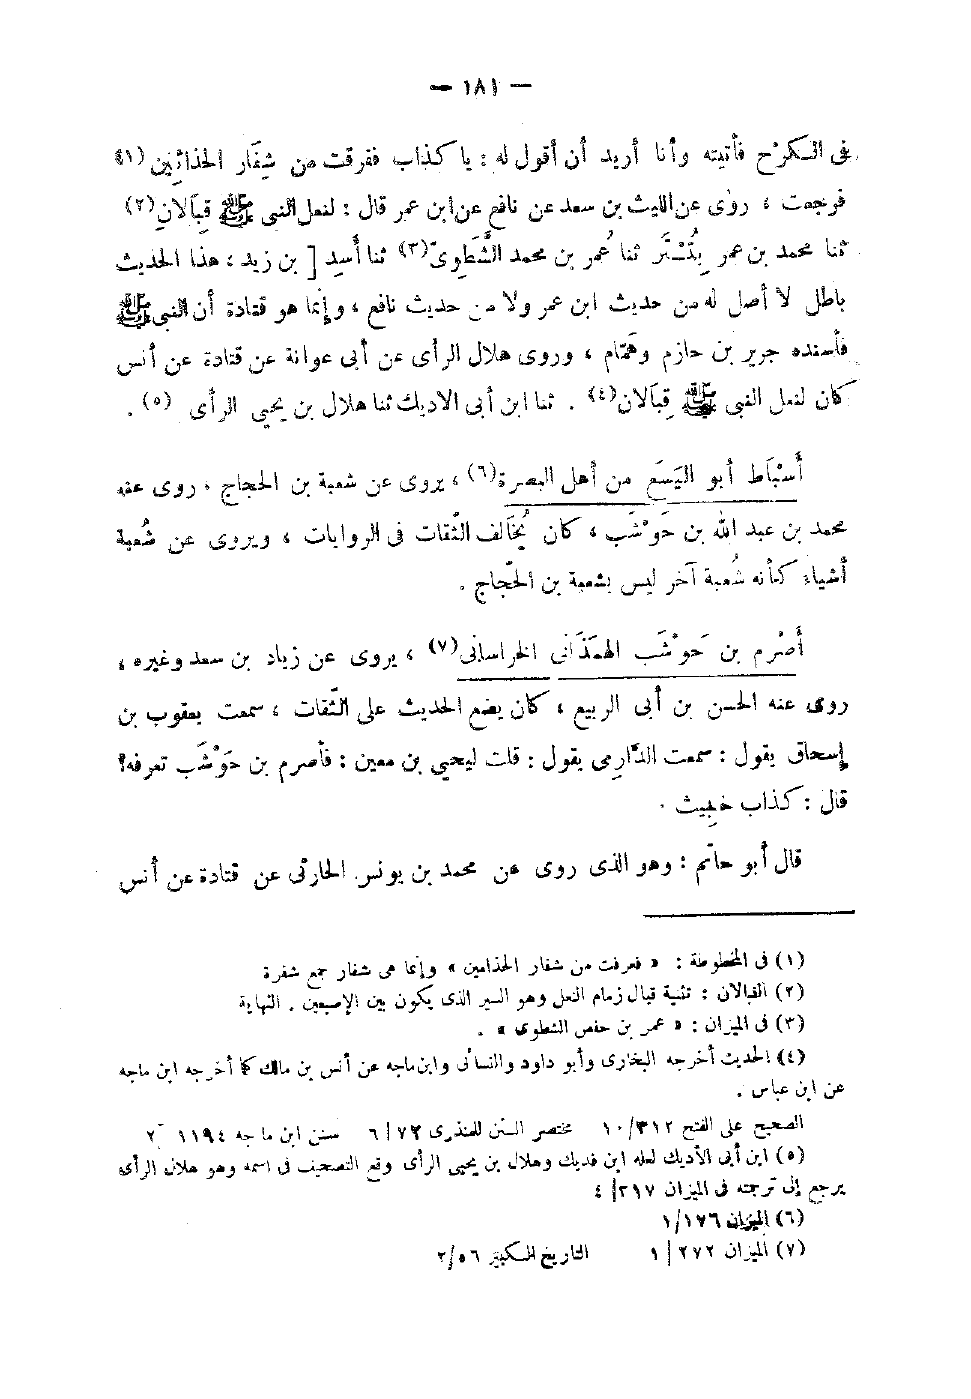 — ١٨١ —
فى الكرْخ فأتيته وأنا أريد أن أقول له : يا كذاب ففرقت من شِفَار الحذائِين (١)
فرجعت ، روى عن الليث بن سعد عن نافع عن ابن عمر قال : لنعل النبى ﷺ قِبَالَانِ (٢)
ثنا محمد بن عمر بِتُسْتَر ثنا عُمر بن محمد الشَّطَوِىّ (٣) ثنا أَسِيد [ بن زيد ، هذا الحديث
باطل لا أصل له من حديث ابن عمر ولا من حديث نافع ، وإنما هو قتادة أن النبى ﷺ
فأسنده جرير بن حازم وهَمّام ، وروى هلال الرأى عن أبى عوانة عن قتادة عن أنس
كان لنعل النبى ﷺ قِبَالان (٤) . ثنا ابن أبى الاديك ثنا هلال بن يحيى الرأى (٥) .
أَسْبَاط أبو اليَسَع من أهل البصرة (٦) ، يروى عن شعبة بن الحجاج . روى عنه
محمد بن عبد الله بن حَوْشَب ، كان يُخَالف الثّقات فى الروايات ، ويروى عن شُعبة
أشياء كأنه شُعبة آخر ليس بشعبة بن الحَجّاج .
أَصْرم بن حَوْشَب الهمَذَانى الخراسانى (٧) ، يروى عن زياد بن سعد وغيره ،
روى عنه الحسن بن أبى الربيع ، كان يضع الحديث على الثّقات ، سمعت يعقوب بن
إسحاق يقول : سمعت الدَّارِمى يقول : قلت ليحيى بن معين : فأصرم بن حَوْشَب تعرفه؟
قال : كذاب خبيث .
قال أبو حاتم : وهو الذى روى عن محمد بن يونس الحارثى عن قتادة عن أنس
(١) فى المخطوطة : « فعرفت من شفار الحذامين » وإنما هى شفار جمع شفرة
(٢) القبالان : تثنية قبال زمام النعل وهو السير الذى يكون بين الإصبعين . النهاية
(٣) فى الميزان : « عمر بن حفص الشطوى » .
(٤) الحديث أخرجه البخارى وأبو داود والنسائى وابن ماجه عن أنس بن مالك كما أخرجه ابن ماجه
عن ابن عباس .
الصحيح على الفتح ١٠/٣١٢ مختصر السنن للمنذرى ٦/٧٣ سنن ابن ماجه ١١٩٤ ٢
(٥) ابن أبى الأديك لعله ابن فديك وهلال بن يحيى الرأى وقع التصحيف فى اسمه وهو هلال الرأى
يرجع إلى ترجمته فى الميزان ٤/٣١٧
(٦) الميزان ١/١٧٦
(٧) الميزان ١/٢٧٢ التاريخ الكبير ٢/٥٦